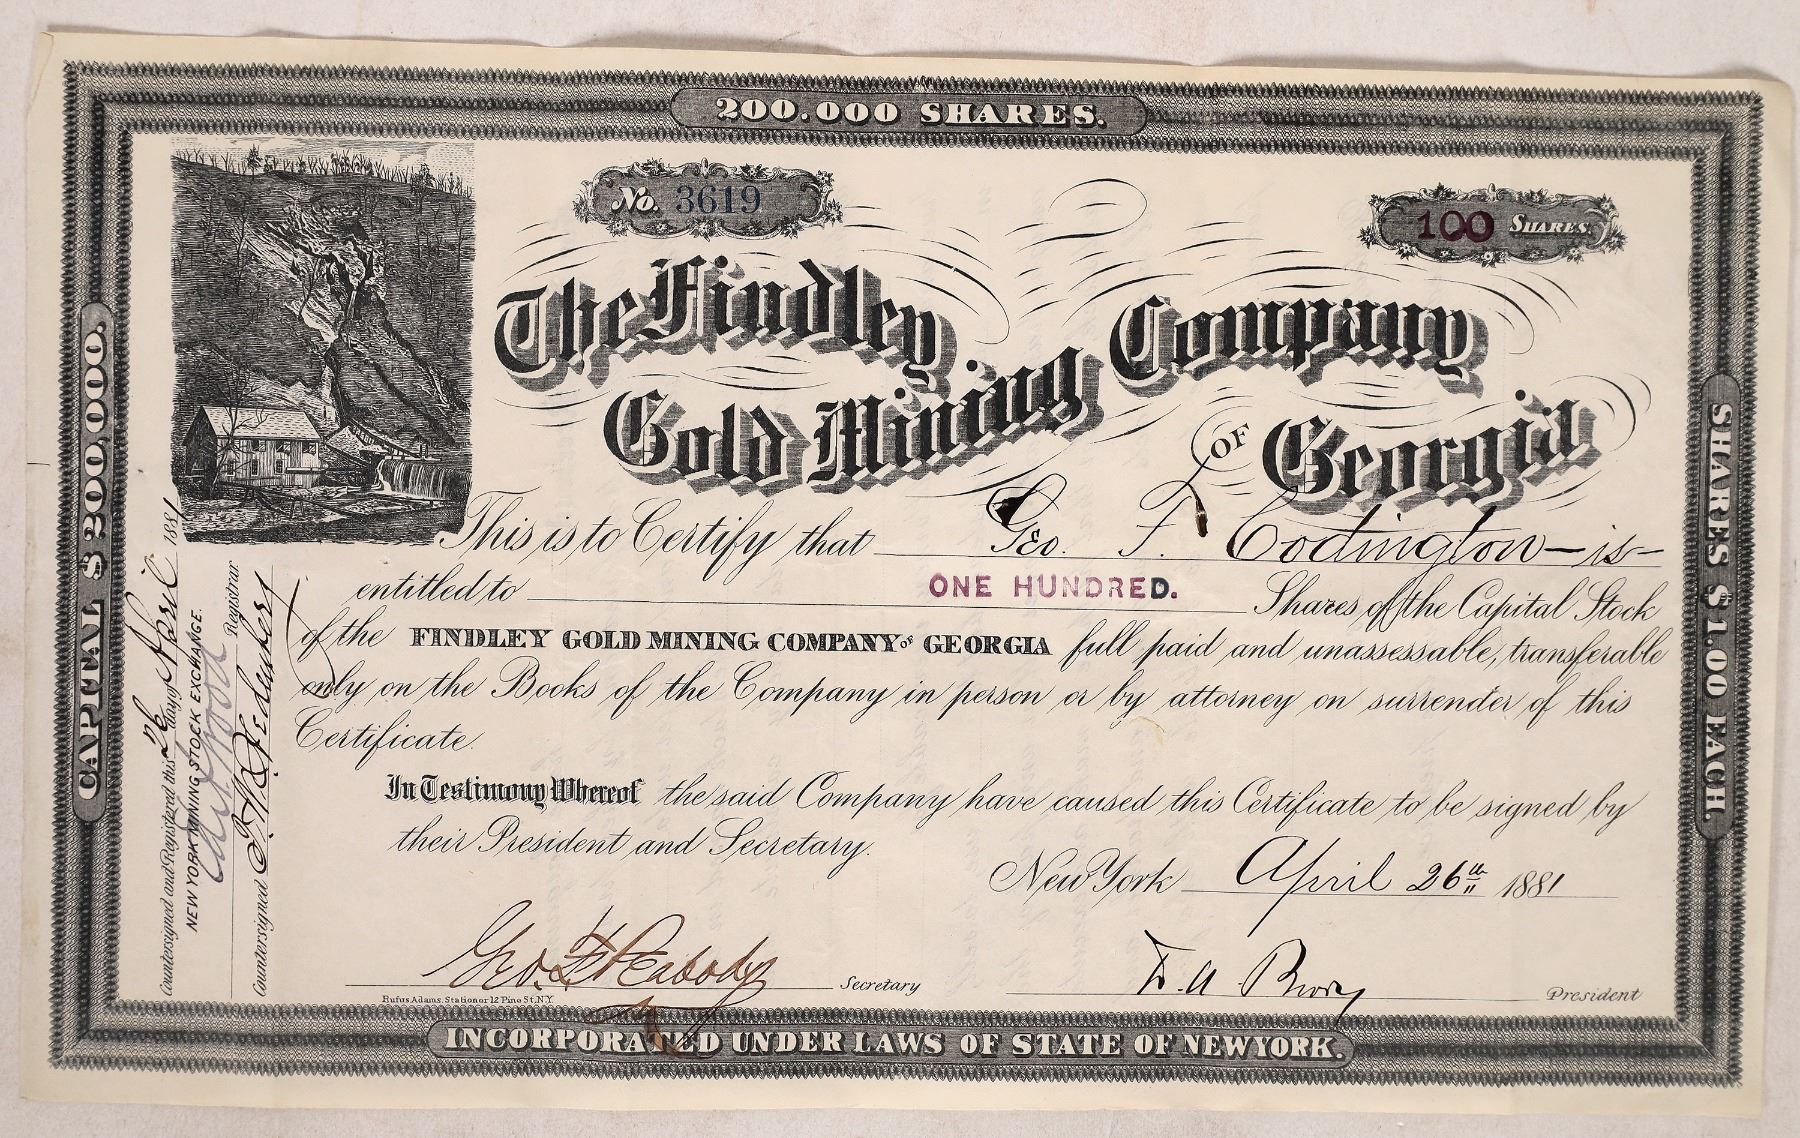 200.000 SHARES.
No. 3619
100 SHARES
The Findley
Gold Mining
Company
OF Georgia
CAPITAL $200,000.
SHARES $1.00 EACH.
This is to Certify that Geo. F. Codington - is -
entitled to ONE HUNDRED. Shares of the Capital Stock
of the FINDLEY GOLD MINING COMPANY OF GEORGIA full paid and unassessable, transferable
only on the Books of the Company in person or by attorney on surrender of this
Certificate.
In Testimony Whereof the said Company have caused this Certificate to be signed by
their President and Secretary.
New York April 26th 1881
Geo. Peabody Secretary
President
Rufus Adams. Stationer 12 Pine St. N.Y.
INCORPORATED UNDER LAWS OF STATE OF NEW YORK.
Countersigned and Registered this 26 day of April 1881
NEW YORK MINING STOCK EXCHANGE.
Registrar
Countersigned